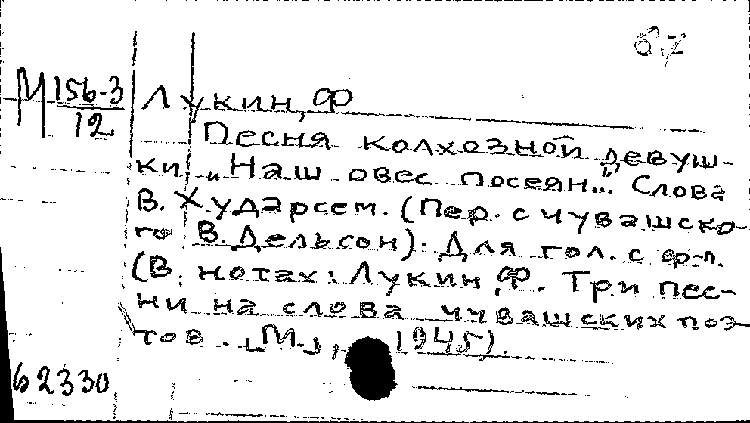 М 156-3
12
Лукин, Ф
Песня колхозной девуш-
ки „Наш овес посеян..." Слова
В. Хударсем. (Пер. с чувашско-
го В. Дельсон). Для гол. с ф-п.
(В нотах: Лукин, Ф. Три пес-
ни на слова чувашских поэ-
тов. [М.], 1945).
62330